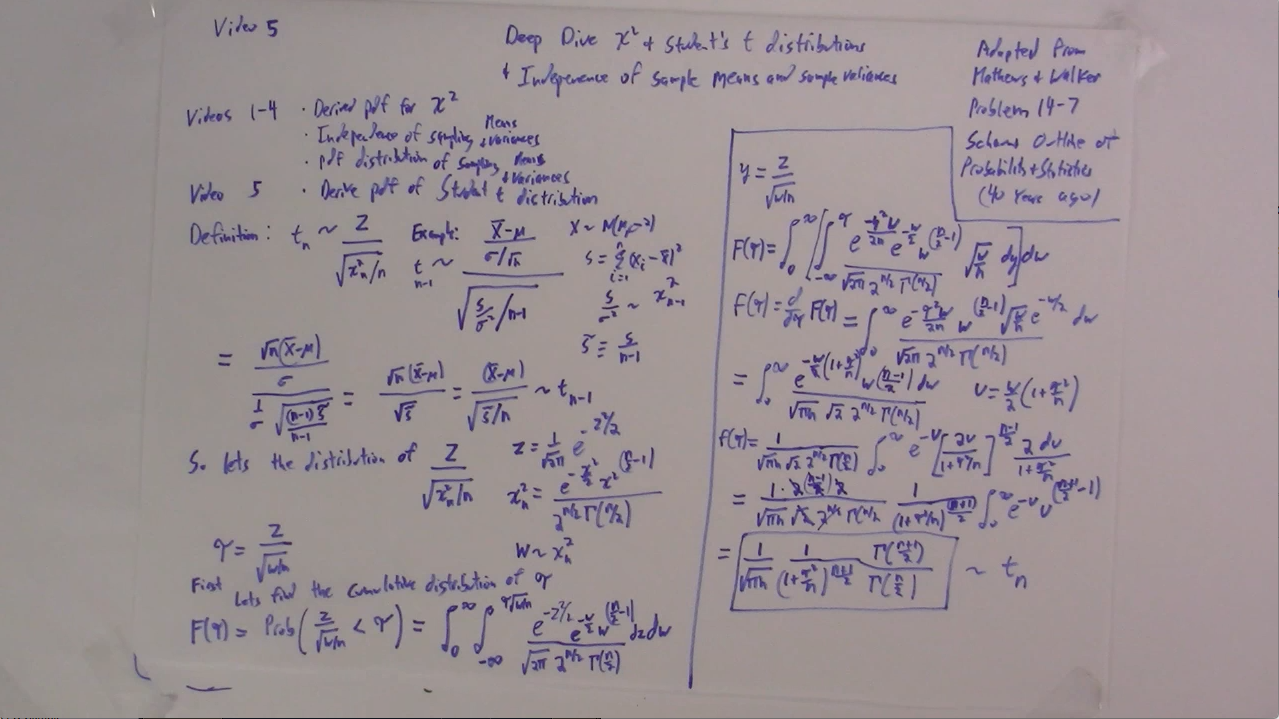 Video 5
Deep Dive x² + Student's t distributions
+ Indepenence of sample means and sample variances
Adapted From
Mathews + Walker
Problem 14-7
Schaums Outline of
Probability + Statistics
(40 years ago)
Videos 1-4 · Derived pdf for x²
· Independence of sampling means + variances
· pdf distribution of sampling means + variances
Video 5 · Derive pdf of Student t distribution
Definition: t_n ~ Z / √(x²_n/n) Example: t_{n-1} ~ ((x̄-μ)/(σ/√n)) / √((s/σ²)/n-1) X ~ N(μ, σ²)
s = Σ_{i=1}^{n} (x_i - x̄)²
s/σ² ~ x²_{n-1}
s̃ = s/(n-1)
= (√n(x̄-μ)/σ) / ((1/σ)√((n-1)s̃/(n-1))) = √n(x̄-μ)/√s̃ = (x̄-μ)/√(s̃/n) ~ t_{n-1}
So lets the distribution of Z / √(x²_n/n) z = (1/√2π) e^{-z²/2}
x²_n = e^{-x²/2} x²^{(n/2-1)} / (2^{n/2} Γ(n/2))
τ = Z / √(w/n) W ~ x²_n
First lets find the cumulative distribution of τ
F(τ) = Prob(Z/√(w/n) < τ) = ∫_0^∞ ∫_{-∞}^{τ√(w/n)} e^{-z²/2} e^{-w/2} w^{(n/2-1)} / (√2π 2^{n/2} Γ(n/2)) dz dw
y = Z / √(w/n)
F(τ) = ∫_0^∞ [∫_{-∞}^{τ} e^{-y²w/2n} e^{-w/2} w^{(n/2-1)} / (√2π 2^{n/2} Γ(n/2)) √(w/n) dy] dw
f(τ) = d/dτ F(τ) = ∫_0^∞ e^{-τ²w/2n} w^{(n/2-1)} √(w/n) e^{-w/2} dw / (√2π 2^{n/2} Γ(n/2))
= ∫_0^∞ e^{-w/2(1+τ²/n)} w^{(n-1)/2} dw / (√πn √2 2^{n/2} Γ(n/2)) v = w/2 (1+τ²/n)
f(τ) = 1/(√πn √2 2^{n/2} Γ(n/2)) ∫_0^∞ e^{-v} [2v/(1+τ²/n)]^{(n-1)/2} 2dv/(1+τ²/n)
= 1·2^{(n-1)/2} 2 / (√πn √2 2^{n/2} Γ(n/2)) 1/(1+τ²/n)^{(n+1)/2} ∫_0^∞ e^{-v} v^{((n+1)/2-1)}
= 1/√πn 1/(1+τ²/n)^{(n+1)/2} Γ((n+1)/2)/Γ(n/2) ~ t_n